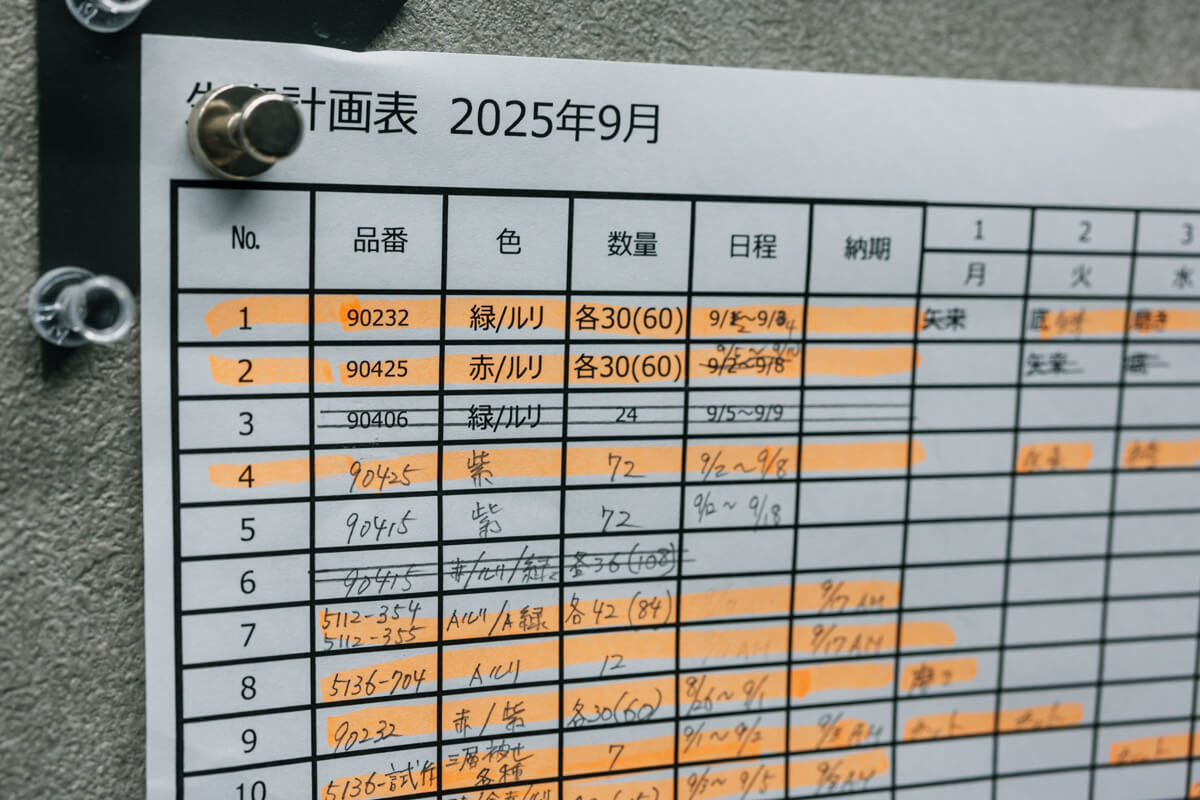 計画表 2025年9月
No. 品番 色 数量 日程 納期 1 2 3
月 火 水
1 90232 緑/ルリ 各30(60) 矢来 底
2 90425 赤/ルリ 各30(60) 9/2~9/8 矢来
3 90406 緑/ルリ 24 9/5~9/9
4 90425 紫 72 9/2~9/8
5 90415 紫 72 9/12~9/18
6 90415 赤/ルリ/緑 各36(108)
7 5112-354 Aルリ/A緑 各42(84) 9/17 AM
5112-355
8 5136-704 Aルリ 12 9/17 AM
9 90232 赤/紫 各30(60) 8/26~9/1
10 5136-試作 三層被せ 7 9/1~9/2
各種
9/3~9/5